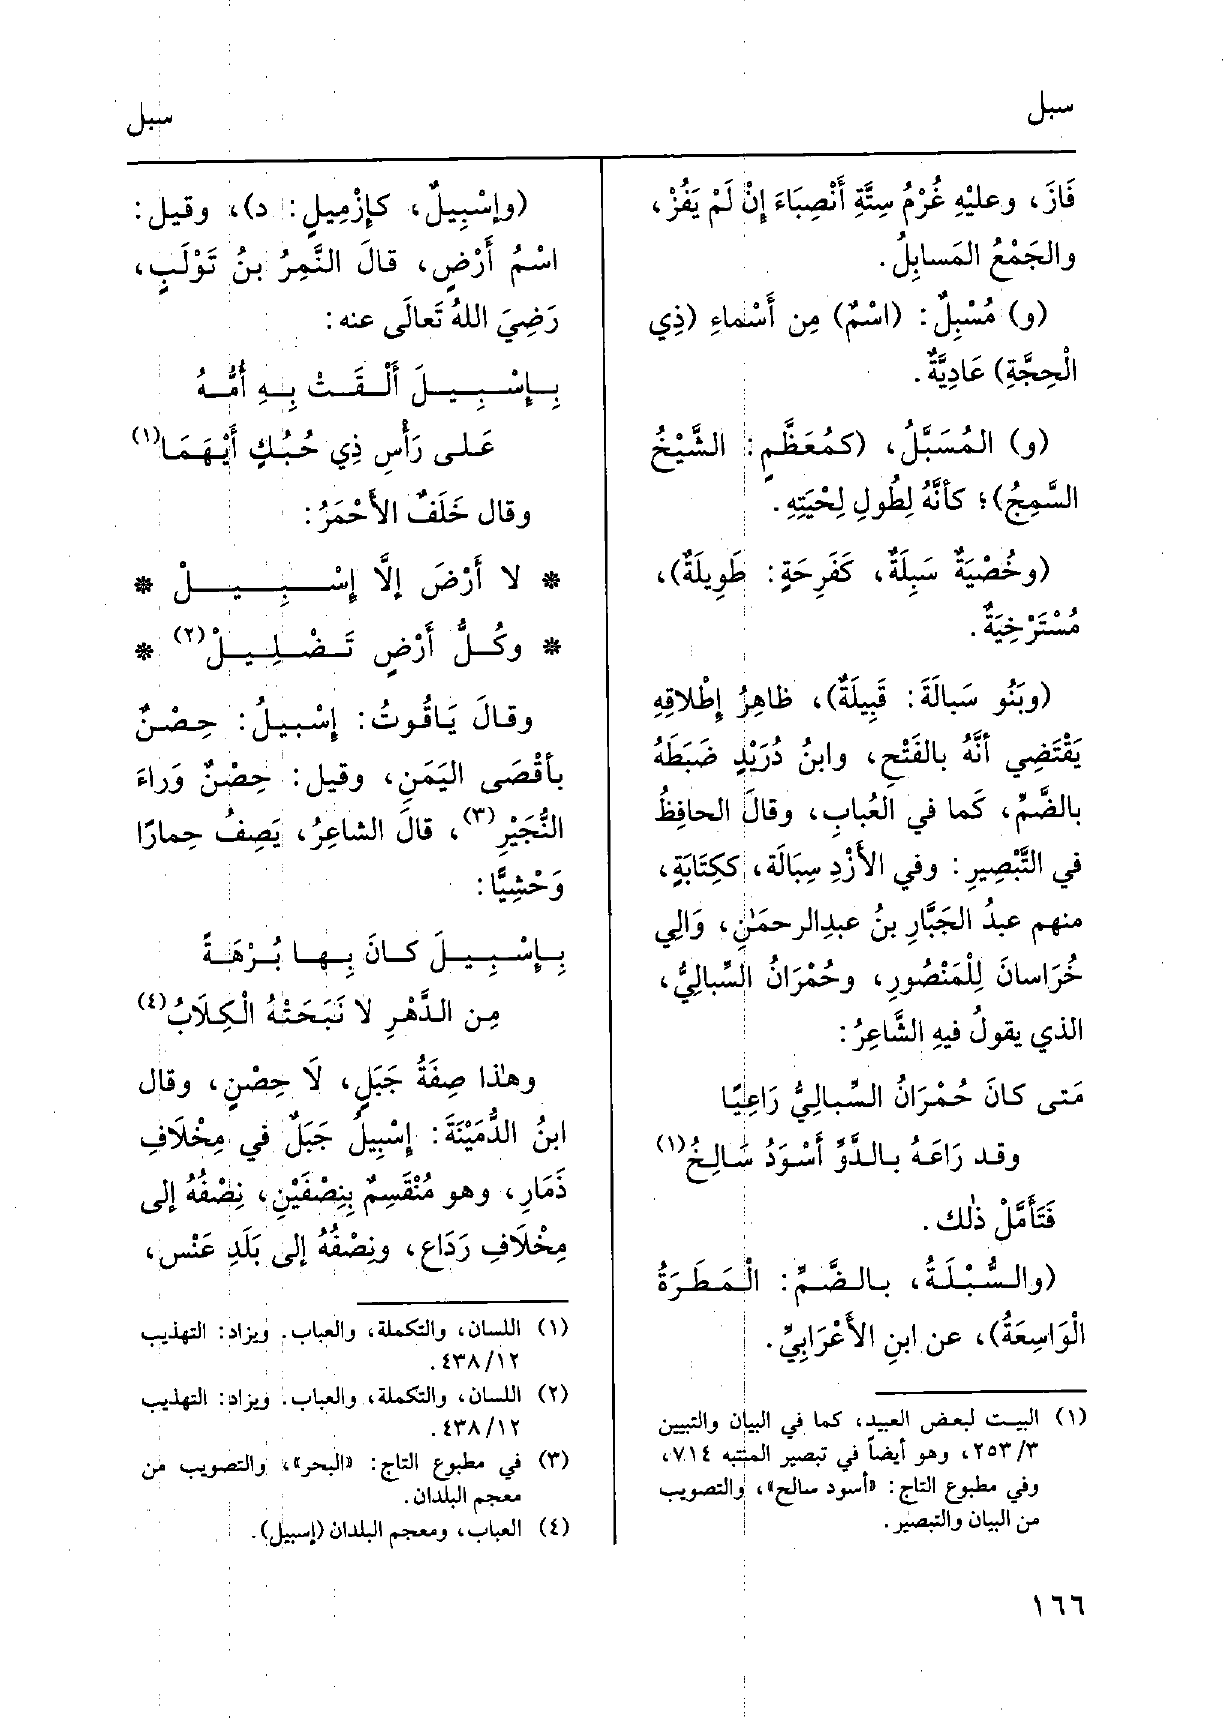 سبل
سبل
فَازَ، وعليْهِ غُرْمُ سِتَّةِ أَنْصِبَاءَ إِنْ لَمْ يَفُزْ،
والجَمْعُ المَسابِلُ.
(و) مُسْبِلٌ: (اسْمٌ) مِن أَسْماءِ (ذِي
الْحِجَّةِ) عَادِيَّةٌ.
(و) المُسَبَّلُ، (كمُعَظَّمٍ: الشَّيْخُ
السَّمِجُ)؛ كأنَّهُ لِطُولِ لِحْيَتِهِ.
(وخُصْيَةٌ سَبِلَةٌ، كَفَرِحَةٍ: طَوِيلَةٌ)،
مُسْتَرْخِيَةٌ.
(وبَنُو سَبالَةَ: قَبِيلَةٌ)، ظاهِرُ إِطْلاقِهِ
يَقْتَضِي أنَّهُ بالفَتْحِ، وابنُ دُرَيْدٍ ضَبَطَهُ
بالضَّمِّ، كَما في العُبابِ، وقالَ الحافِظُ
في التَّبْصِيرِ: وفي الأَزْدِ سِبَالَة، ككِتَابَةٍ،
منهم عبدُ الجَبَّارِ بنُ عبدِالرحمَٰنِ، وَالِي
خُرَاسانَ لِلْمَنْصُورِ، وحُمْرَانُ السِّبالِيُّ،
الذي يقولُ فيهِ الشَّاعِرُ:
مَتى كانَ حُمْرَانُ السِّبالِيُّ رَاعِيًا
وقد رَاعَهُ بالدَّوِّ أَسْوَدُ سَالِخُ(١)
فَتَأَمَّلْ ذٰلك.
(والسُّبْلَةُ، بالضَّمِّ: الْمَطَرَةُ
الْوَاسِعَةُ)، عن ابنِ الأَعْرَابِيِّ.
(١) البيت لبعض العبيد، كما في البيان والتبيين
٣/ ٢٥٣، وهو أيضاً في تبصير المنتبه ٧١٤،
وفي مطبوع التاج: «أسود سالح»، والتصويب
من البيان والتبصير.
(وإِسْبِيلٌ، كإِزْمِيلٍ: د)، وقيل:
اسْمُ أَرْضٍ، قالَ النَّمِرُ بنُ تَوْلَبٍ،
رَضِيَ اللهُ تَعالَى عنه:
بِإِسْبِيلَ أَلْقَتْ بِهِ أُمُّهُ
عَلى رَأْسِ ذِي حُبُكٍ أَيْهَمَا(١)
وقال خَلَفٌ الأَحْمَرُ:
* لا أَرْضَ إلَّا إِسْبِيلْ *
* وكُلُّ أَرْضٍ تَضْلِيلْ(٢) *
وقالَ يَاقُوتُ: إِسْبِيلُ: حِصْنٌ
بأقْصَى اليَمَنِ، وقيل: حِصْنٌ وَراءَ
النُّجَيْرِ(٣)، قالَ الشاعِرُ، يَصِفُ حِمارًا
وَحْشِيًّا:
بِإِسْبِيلَ كانَ بِها بُرْهَةً
مِن الدَّهْرِ لا نَبَحَتْهُ الْكِلَابُ(٤)
وهٰذا صِفَةُ جَبَلٍ، لَا حِصْنٍ، وقال
ابنُ الدُّمَيْنَةَ: إِسْبِيلُ جَبَلٌ في مِخْلَافِ
ذَمَارِ، وهو مُنْقَسِمٌ بِنِصْفَيْنِ، نِصْفُهُ إلى
مِخْلَافِ رَدَاع، ونِصْفُهُ إلى بَلَدِ عَنْس،
(١) اللسان، والتكملة، والعباب. ويزاد: التهذيب
٤٣٨/١٢.
(٢) اللسان، والتكملة، والعباب. ويزاد: التهذيب
٤٣٨/١٢.
(٣) في مطبوع التاج: «البحر»، والتصويب من
معجم البلدان.
(٤) العباب، ومعجم البلدان (إسبيل).
١٦٦